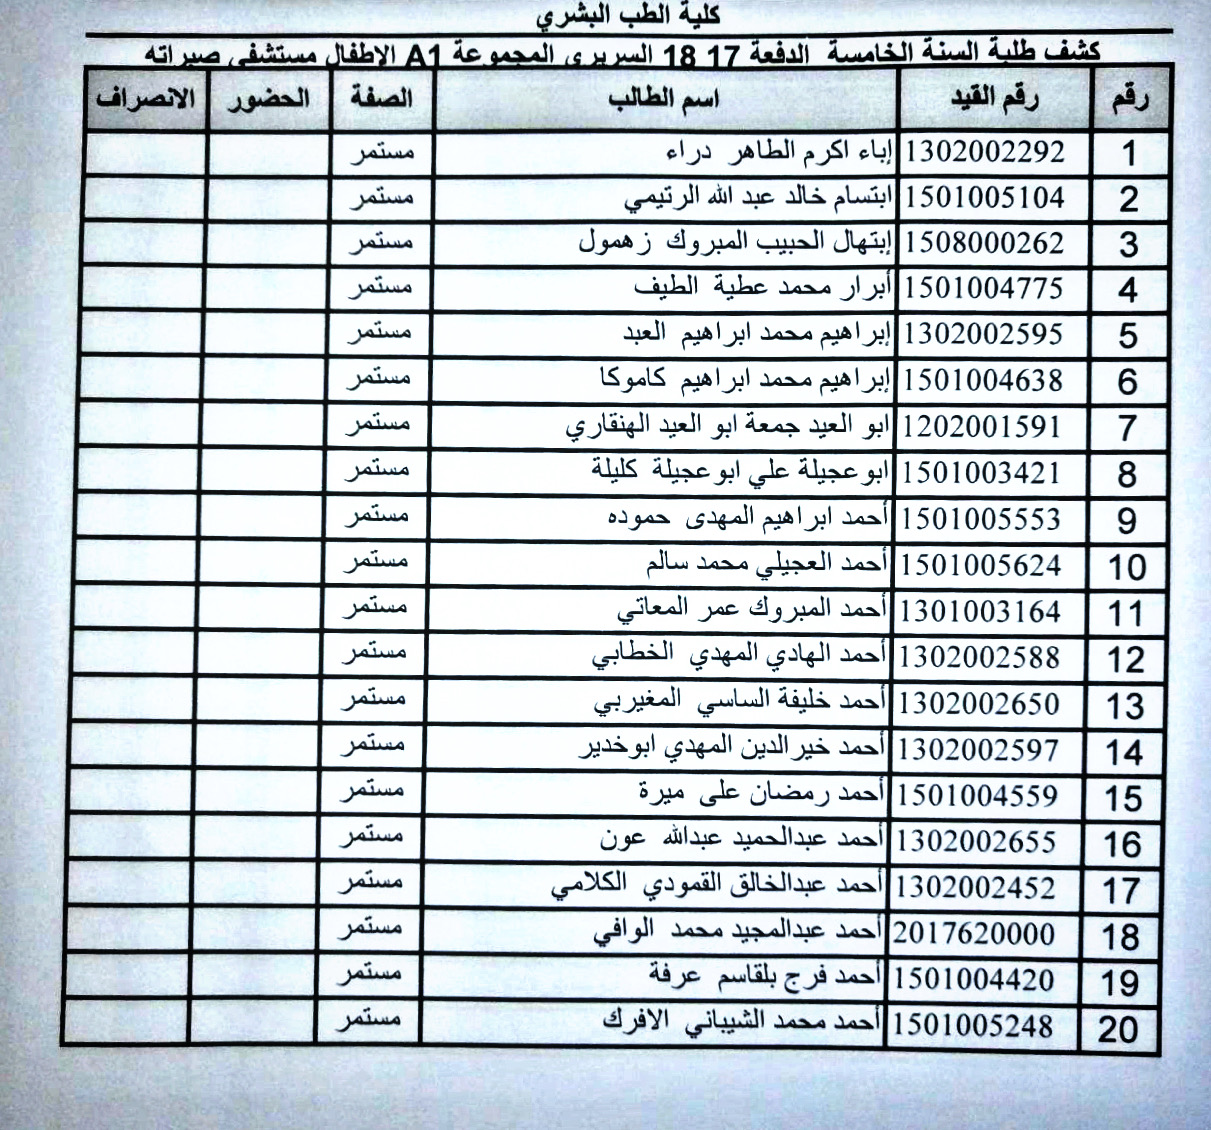 كلية الطب البشري
كشف طلبة السنة الخامسة الدفعة 17 18 السريري المجموعة A1 الاطفال مستشفى صبراته
رقم رقم القيد اسم الطالب الصفة الحضور الانصراف
1 1302002292 إباء اكرم الطاهر دراء مستمر
2 1501005104 ابتسام خالد عبد الله الرتيمي مستمر
3 1508000262 إبتهال الحبيب المبروك زهمول مستمر
4 1501004775 أبرار محمد عطية الطيف مستمر
5 1302002595 إبراهيم محمد ابراهيم العبد مستمر
6 1501004638 إبراهيم محمد ابراهيم كاموكا مستمر
7 1202001591 ابو العيد جمعة ابو العيد الهنقاري مستمر
8 1501003421 ابوعجيلة علي ابوعجيلة كليلة مستمر
9 1501005553 أحمد ابراهيم المهدى حموده مستمر
10 1501005624 أحمد العجيلي محمد سالم مستمر
11 1301003164 أحمد المبروك عمر المعاتي مستمر
12 1302002588 أحمد الهادي المهدي الخطابي مستمر
13 1302002650 أحمد خليفة الساسي المغيربي مستمر
14 1302002597 أحمد خيرالدين المهدي ابوخدير مستمر
15 1501004559 أحمد رمضان على ميرة مستمر
16 1302002655 أحمد عبدالحميد عبدالله عون مستمر
17 1302002452 أحمد عبدالخالق القمودي الكلامي مستمر
18 2017620000 أحمد عبدالمجيد محمد الوافي مستمر
19 1501004420 أحمد فرج بلقاسم عرفة مستمر
20 1501005248 أحمد محمد الشيباني الافرك مستمر